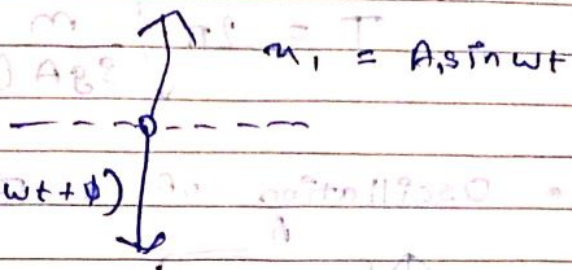 x₁ = A₁sinωt
ωt + φ)